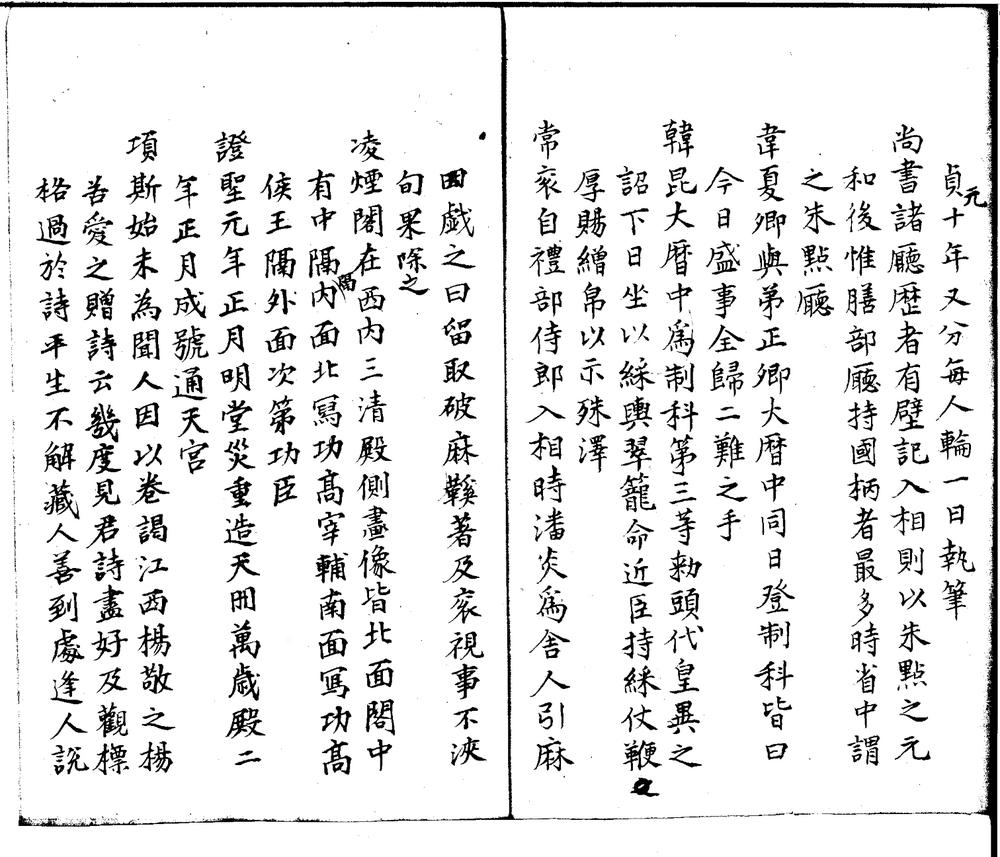 貞元十年又分每人輪一日執筆
尚書諸廳歴者有壁記入相則以朱點之元
和後惟膳部廳持國柄者最多時省中謂
之朱點廳
韋夏卿與弟正卿大暦中同日登制科皆曰
今日盛事全歸二難之手
韓昆大暦中爲制科第三等勑頭代皇異之
詔下日坐以綵輿翠籠命近臣持綵仗鞭
厚賜繒帛以示殊澤
常衮自禮部侍郎入相時潘炎爲舎人引麻
因戯之曰留取破麻鞵著及衮視事不浹
旬果除之
凌煙閣在西内三清殿側畫像皆北面閣中
有中隔隔内面北寫功髙宰輔南面寫功髙
侯王隔外面次第功臣
證聖元年正月明堂災重造天冊萬歳殿二
年正月成號通天宮
項斯始未為聞人因以卷謁江西楊敬之楊
苦愛之贈詩云幾度見君詩盡好及觀標
格過於詩平生不解藏人善到處逢人説